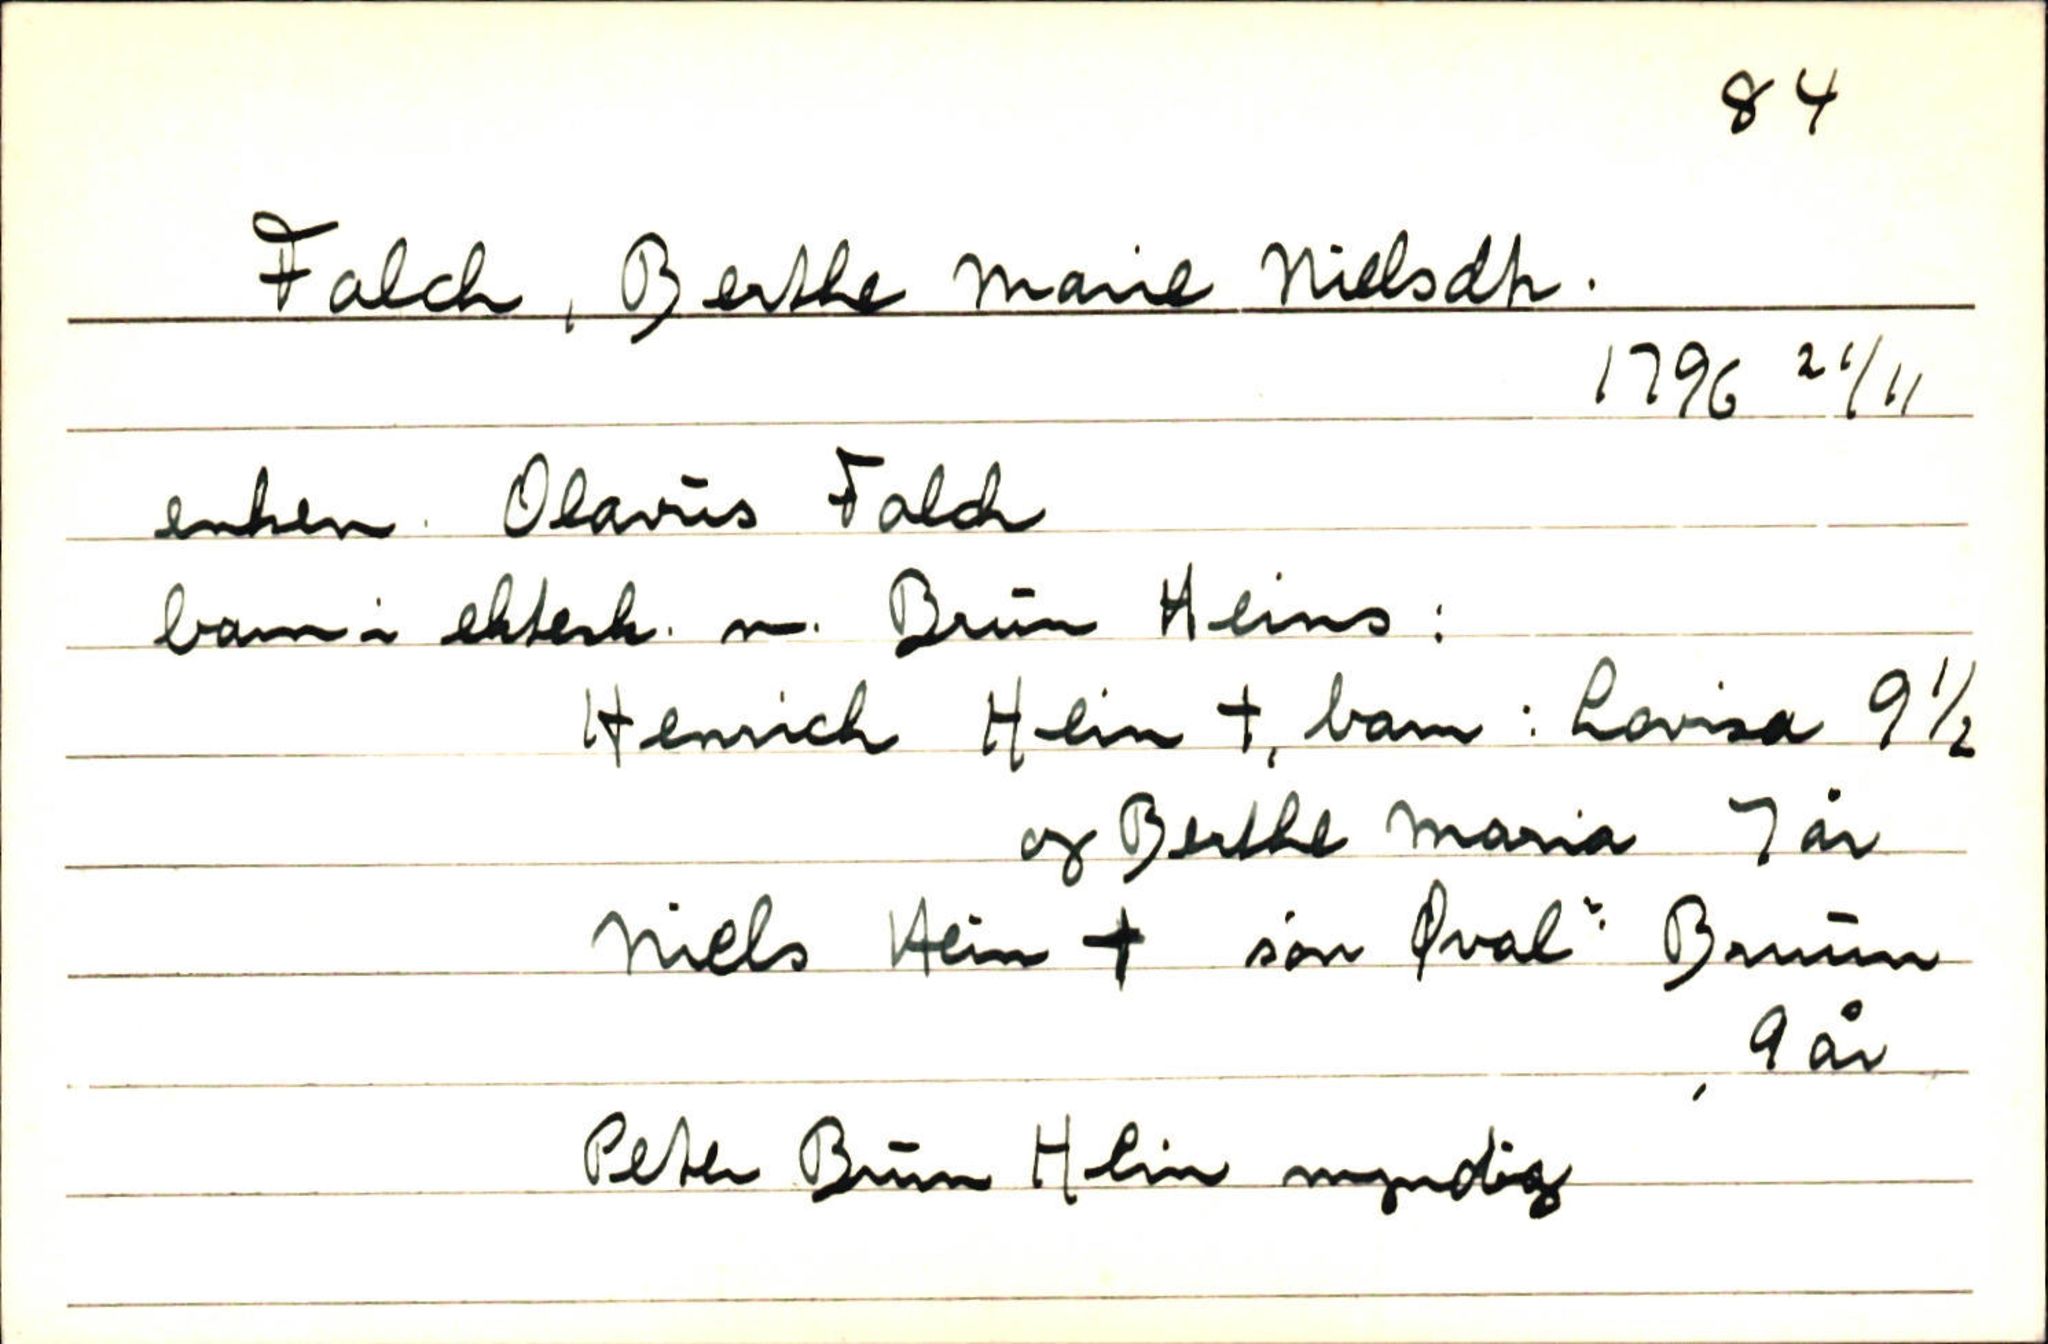 84
Falch, Berthe Marie Nielsdtr.
1796 21/11
enken. Olavus Falch
barn i ektesk. m. Brun Heins:
Henrich Hein †, barn: Lovisa 9 1/2
og Berthe Maria 7 år
Niels Hein † søn Bruun
, 9 år
Peter Brun Hein myndig